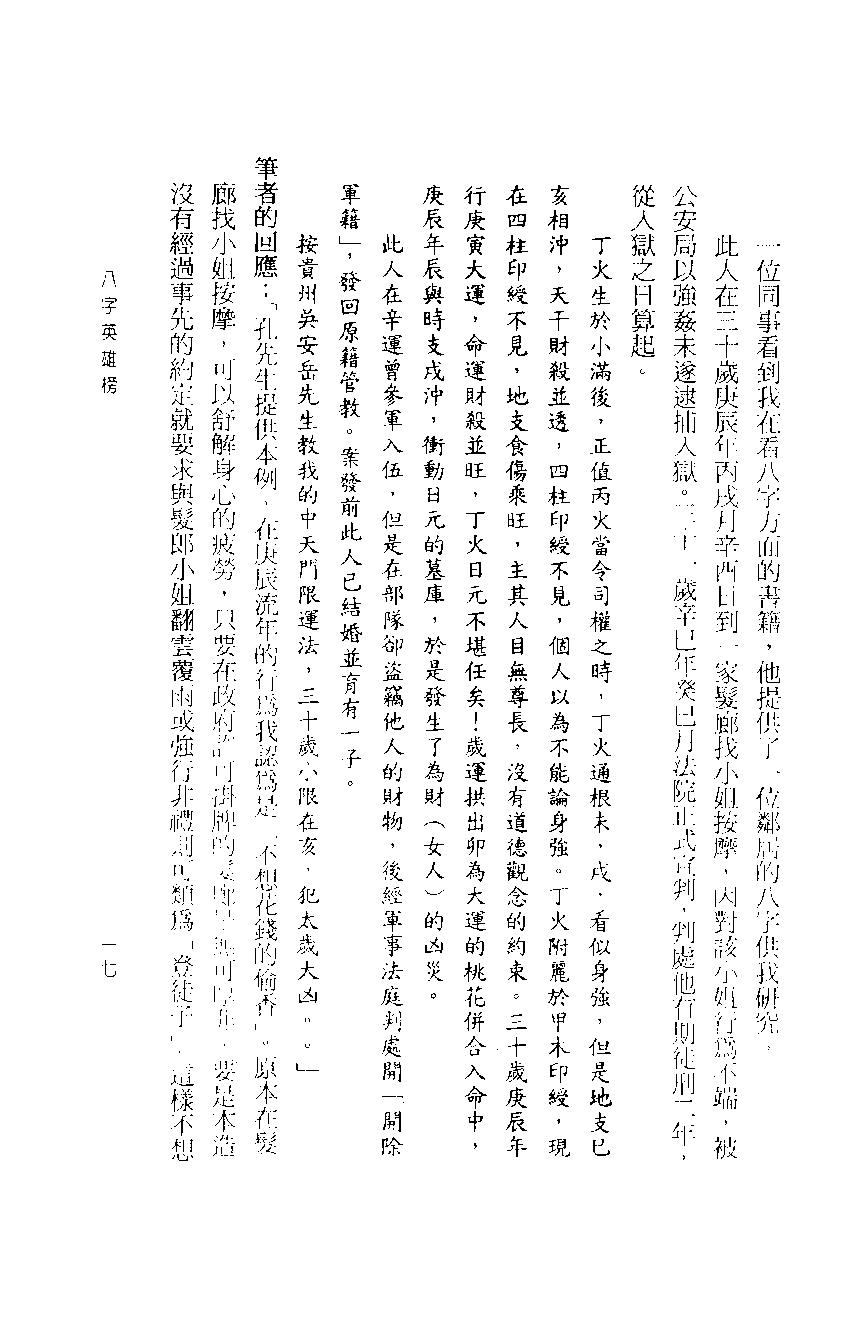 一位同事看到我在看八字方面的書籍，他提供了一位鄰居的八字供我研究。
此人在三十歲庚辰年丙戌月辛酉日到一家髮廊找小姐按摩，因對該小姐行為不端，被
公安局以強姦未遂逮捕入獄。三十一歲辛巳年癸巳月法院正式宣判，判處他有期徒刑二年，
從入獄之日算起。
丁火生於小滿後，正值丙火當令司權之時，丁火通根未、戌，看似身強，但是地支巳
亥相沖，天干財殺並透，四柱印綬不見，個人以為不能論身強。丁火附麗於甲木印綬，現
在四柱印綬不見，地支食傷乘旺，主其人目無尊長，沒有道德觀念的約束。三十歲庚辰年
行庚寅大運，命運財殺並旺，丁火日元不堪任矣！歲運拱出卯為大運的桃花併合入命中，
庚辰年辰與時支戌沖，衝動日元的墓庫，於是發生了為財（女人）的凶災。
此人在辛運曾參軍入伍，但是在部隊卻盜竊他人的財物，後經軍事法庭判處開「開除
軍籍」，發回原籍管教。案發前此人已結婚並育有一子。
按貴州吳安岳先生教我的中天門限運法，三十歲小限在亥，犯太歲大凶。。」
筆者的回應：「孔先生提供本例，在庚辰流年的行為我認為是「不想花錢的偷香」。原本在髮
廊找小姐按摩，可以舒解身心的疲勞，只要在政府許可掛牌的髮廊是無可厚非，要是本造
沒有經過事先的約定就要求與髮郎小姐翻雲覆雨或強行非禮則可類為「登徒子」，這樣不想
八字英雄榜
一七